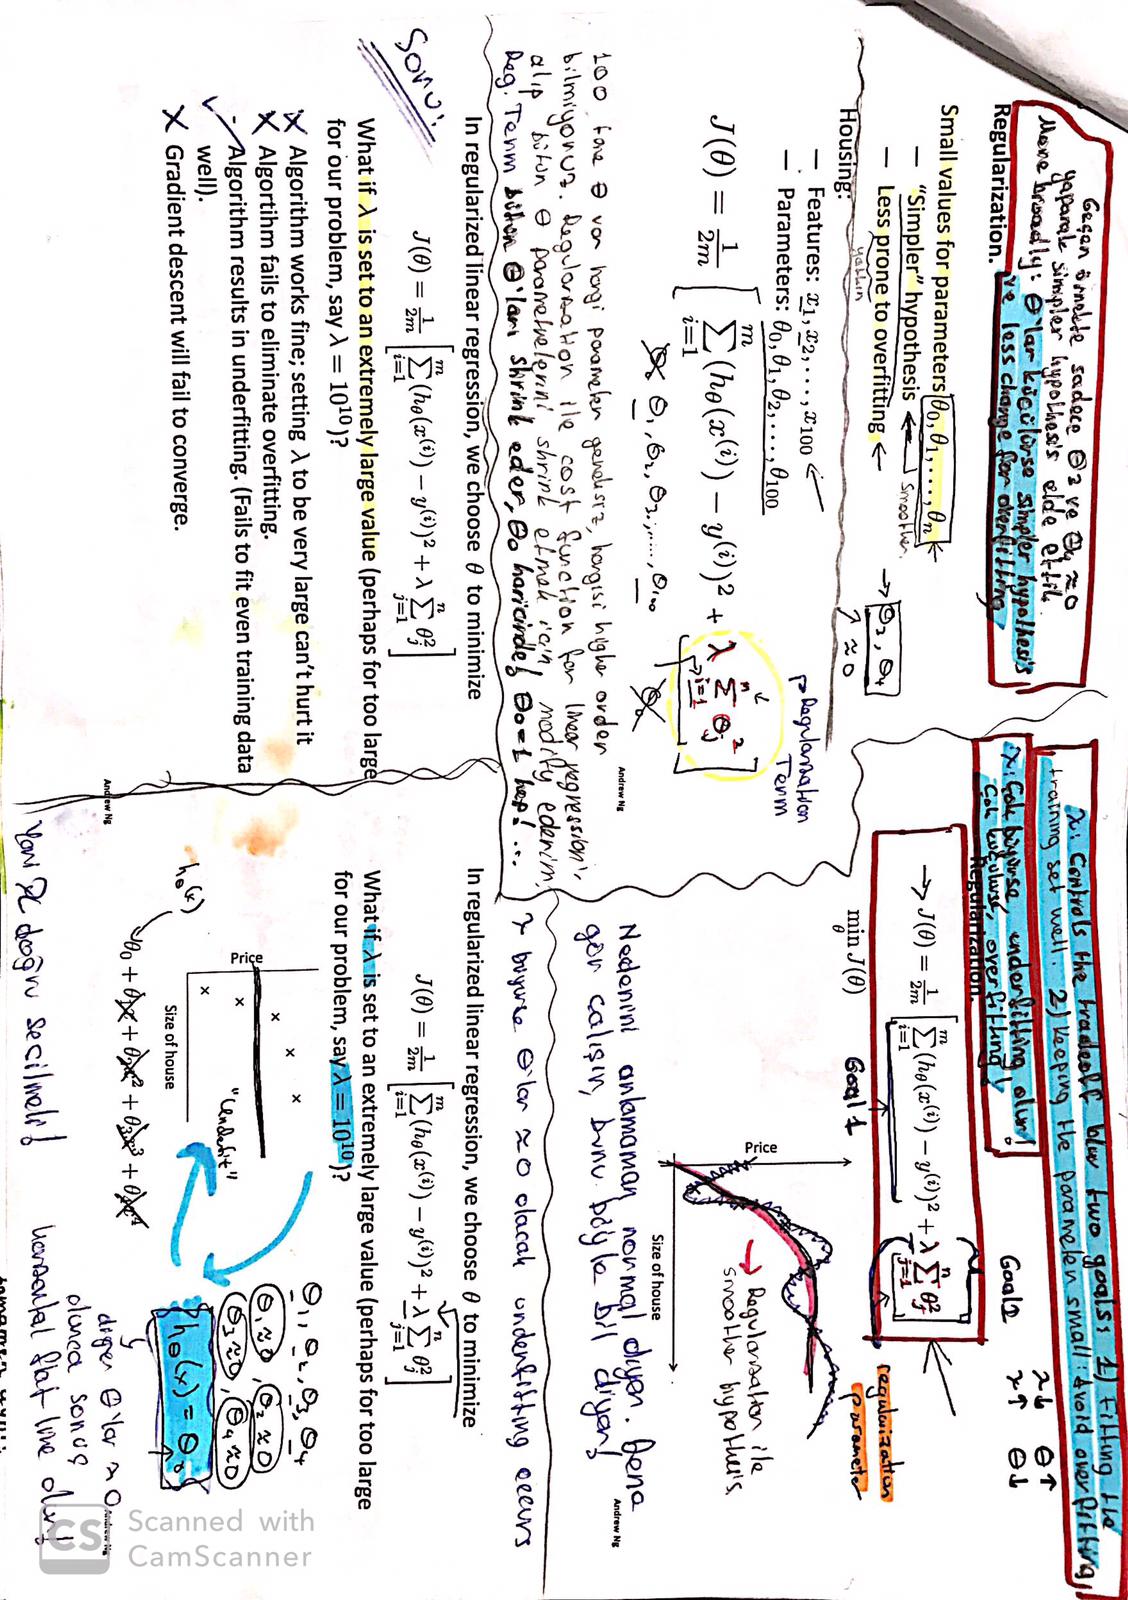 Geçen örnekte sadece Θ3 ve Θ4 ≈ 0
yaparak simpler hypothesis elde ettik.
More broadly: Θ'lar küçülürse simpler hypothesis
ve less change for overfitting
Regularization.
Small values for parameters θ₀, θ₁, . . . , θₙ ←
— “Simpler” hypothesis ← Smoother.
— Less prone to overfitting ←
yatkın
→ Θ3, Θ4
↑ ≈ 0
Housing:
— Features: x₁, x₂, . . . , x₁₀₀
— Parameters: θ₀, θ₁, θ₂, . . . , θ₁₀₀
Regularization
Term
J(θ) = 1/2m [ m∑i=1 (hθ(x⁽ⁱ⁾) − y⁽ⁱ⁾)² + λ n∑i=1 Θj² ]
Θ₁, Θ₂, Θ3, ....., Θ₁₀₀
Θ₀
Andrew Ng
100 tane Θ var hangi parameter gereksiz, hangisi higher order
bilmiyoruz. Regularization ile cost function for linear regression'ı
alıp bütün Θ parametrelerini shrink etmek için, modify ederim.
Reg. Term bütün Θ'ları shrink eder, Θ₀ haricinde! Θ₀=1 hep! ...
λ: Controls the tradeoff b/w two goals: 1) Fitting the
training set well. 2) Keeping the parameters small: Avoid overfitting
λ↓ Θ↑
λ↑ Θ↓
λ: Çok büyürse, underfitting olur!
Çok küçülürse, overfitting!
Goal2
Regularization.
→ J(θ) = 1/2m [ m∑i=1 (hθ(x⁽ⁱ⁾) − y⁽ⁱ⁾)² + λ n∑j=1 θj² ]
regularization
parameter
min J(θ)
θ
Goal 1
Price
→ Regularization ile
smoother hypothesis
Size of house
Nedenini anlamaman normal diyor.
gör çalışın, bunu böyle bil diyor!
Andrew Ng
λ büyürse Θ'lar ≈ 0 olacak underfitting occurs
Soru:
In regularized linear regression, we choose θ to minimize
J(θ) = 1/2m [ m∑i=1 (hθ(x⁽ⁱ⁾) − y⁽ⁱ⁾)² + λ n∑j=1 θj² ]
What if λ is set to an extremely large value (perhaps for too large
for our problem, say λ = 10¹⁰)?
Algorithm works fine; setting λ to be very large can’t hurt it
Algortihm fails to eliminate overfitting.
- Algorithm results in underfitting. (Fails to fit even training data
well).
Gradient descent will fail to converge.
Andrew Ng
In regularized linear regression, we choose θ to minimize
J(θ) = 1/2m [ m∑i=1 (hθ(x⁽ⁱ⁾) − y⁽ⁱ⁾)² + λ n∑j=1 θj² ]
What if λ is set to an extremely large value (perhaps for too large
for our problem, say λ = 10¹⁰)?
Price
"Underfit"
Size of house
Θ1, Θ2, Θ3, Θ4
Θ1≈0, Θ2≈0
Θ3≈0, Θ4≈0
hΘ(x) = Θ₀
hΘ(x)
θ₀ + θ₁x + θ₂x² + θ₃x³ + θ₄x⁴
diğer Θ'lar ≈ 0
olunca sonuç
horizontal flat line olur!
Andrew Ng
Yani λ doğru seçilmeli!
Scanned with
CamScanner
CS